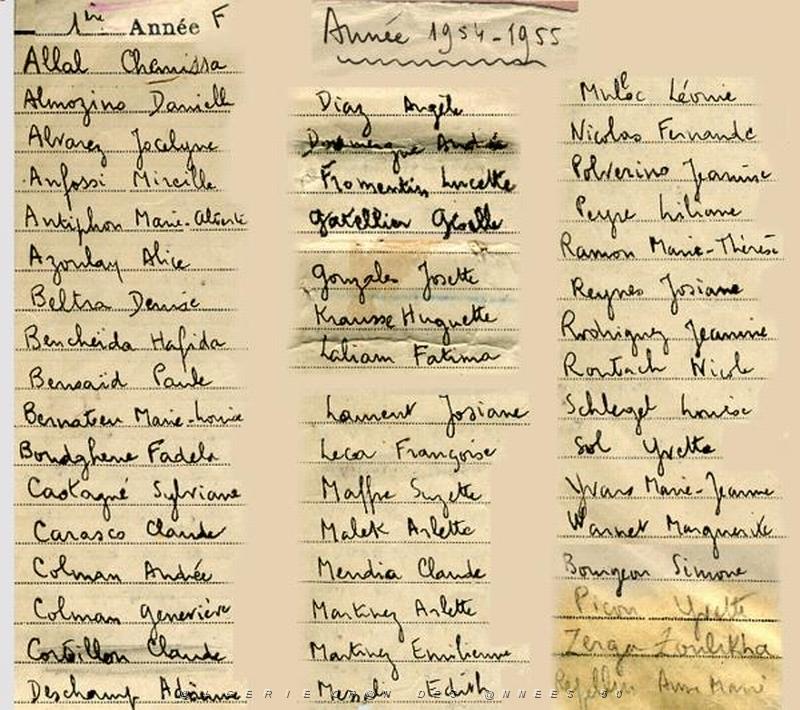 1ère Année F
Allal Chemissa
Almozino Danielle
Alvarez Jocelyne
Anfossi Mireille
Antiphon Marie-Alberte
Azoulay Alice
Beltra Denise
Bencheïda Hafida
Bensaïd Paule
Bernateu Marie-Louise
Boudghene Fadela
Castagné Sylviane
Carasco Claude
Colman Andrée
Colman Geneviève
Cortillon Claude
Deschamp
Année 1954-1955
Diaz Angèle
Domergue Andrée
Fromentin Lucette
Gatellier Giselle
Gonzales Josette
Krausse Huguette
Laliam Fatima
Laurent Josiane
Leca Françoise
Maffre Suzette
Malek Arlette
Mendia Claude
Martinez Arlette
Martinez Emilienne
Edith
Léonie
Nicolas Fernande
Polverino Jeanine
Peyre Liliane
Ramon Marie-Thérèse
Reynes Josiane
Rodriguez Jeannine
Nicole
Schlegel Louise
Sol Yvette
Yvars Marie-Jeanne
Warnet Marguerite
Bourgeon Simone
Picon Yvette
Zerga Zoulikha
Anne Marie